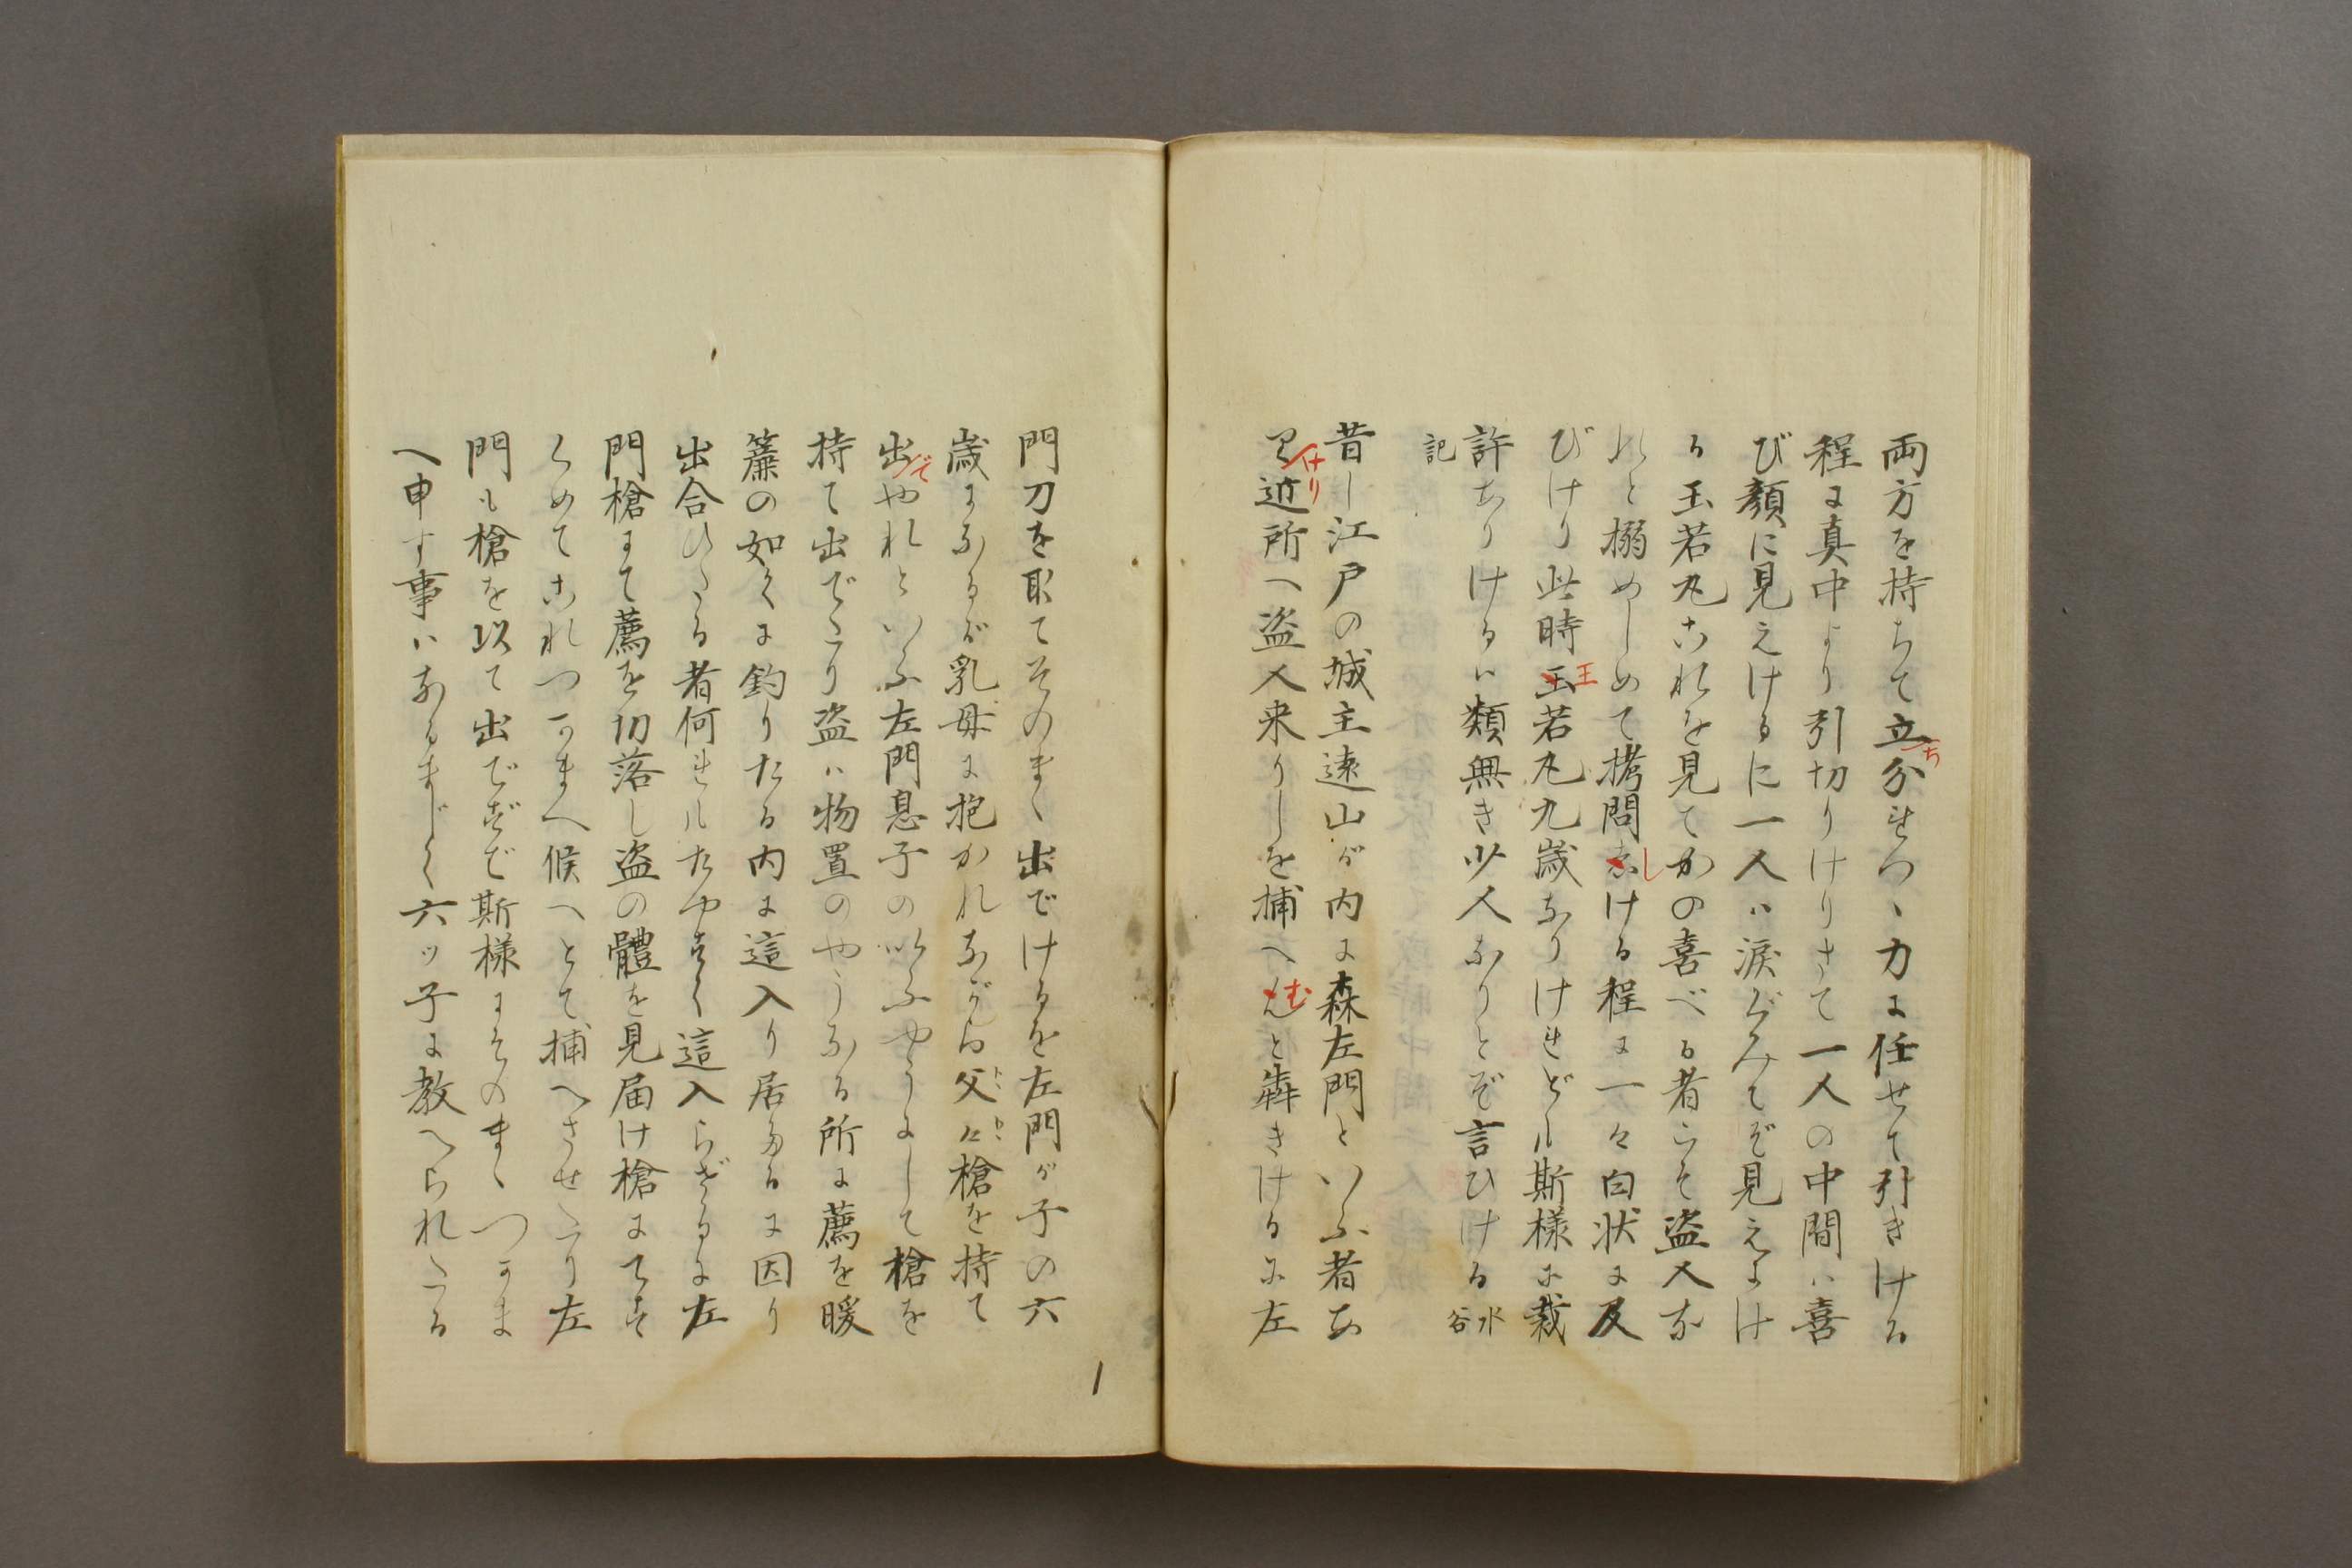 両方を持ちて立ち分れつゝ力に任せて引きける
程に真中より引切りけりさて一人の中間ハ喜
び顔に見えけるに一人ハ涙ぐみてぞ見えにけ
る玉若丸これを見てかの喜べる者こそ盗人な
れと搦めしめて拷問しける程に一々白状に及
びけり此時王若丸九歳なりけれども斯様に裁
許ありけるハ類無き少人なりとぞ言ひける 水谷
記
昔し江戸の城主遠山が内に森左門といふ者あ
りけり近所へ盗人来りしを捕へむと犇きけるに左
門刀を取てそのまゝ出でけるを左門が子の六
歳になるが乳母に抱かれながら父々槍を持て
出でやれといふ左門息子のいふやうにして槍を
持て出でたり盗ハ物置のやうなる所に薦を暖
簾の如くに釣りたる内に這入り居たるに因り
出合ひたる者何れもたやすく這入らざるに左
門槍にて薦を切落し盗の體を見届け槍にてす
くめてこれつかまへ候へとて捕へさせたり左
門も槍を以て出でずば斯様にそのまゝつかま
へ申す事ハなるまじく六ッ子に教へられたる